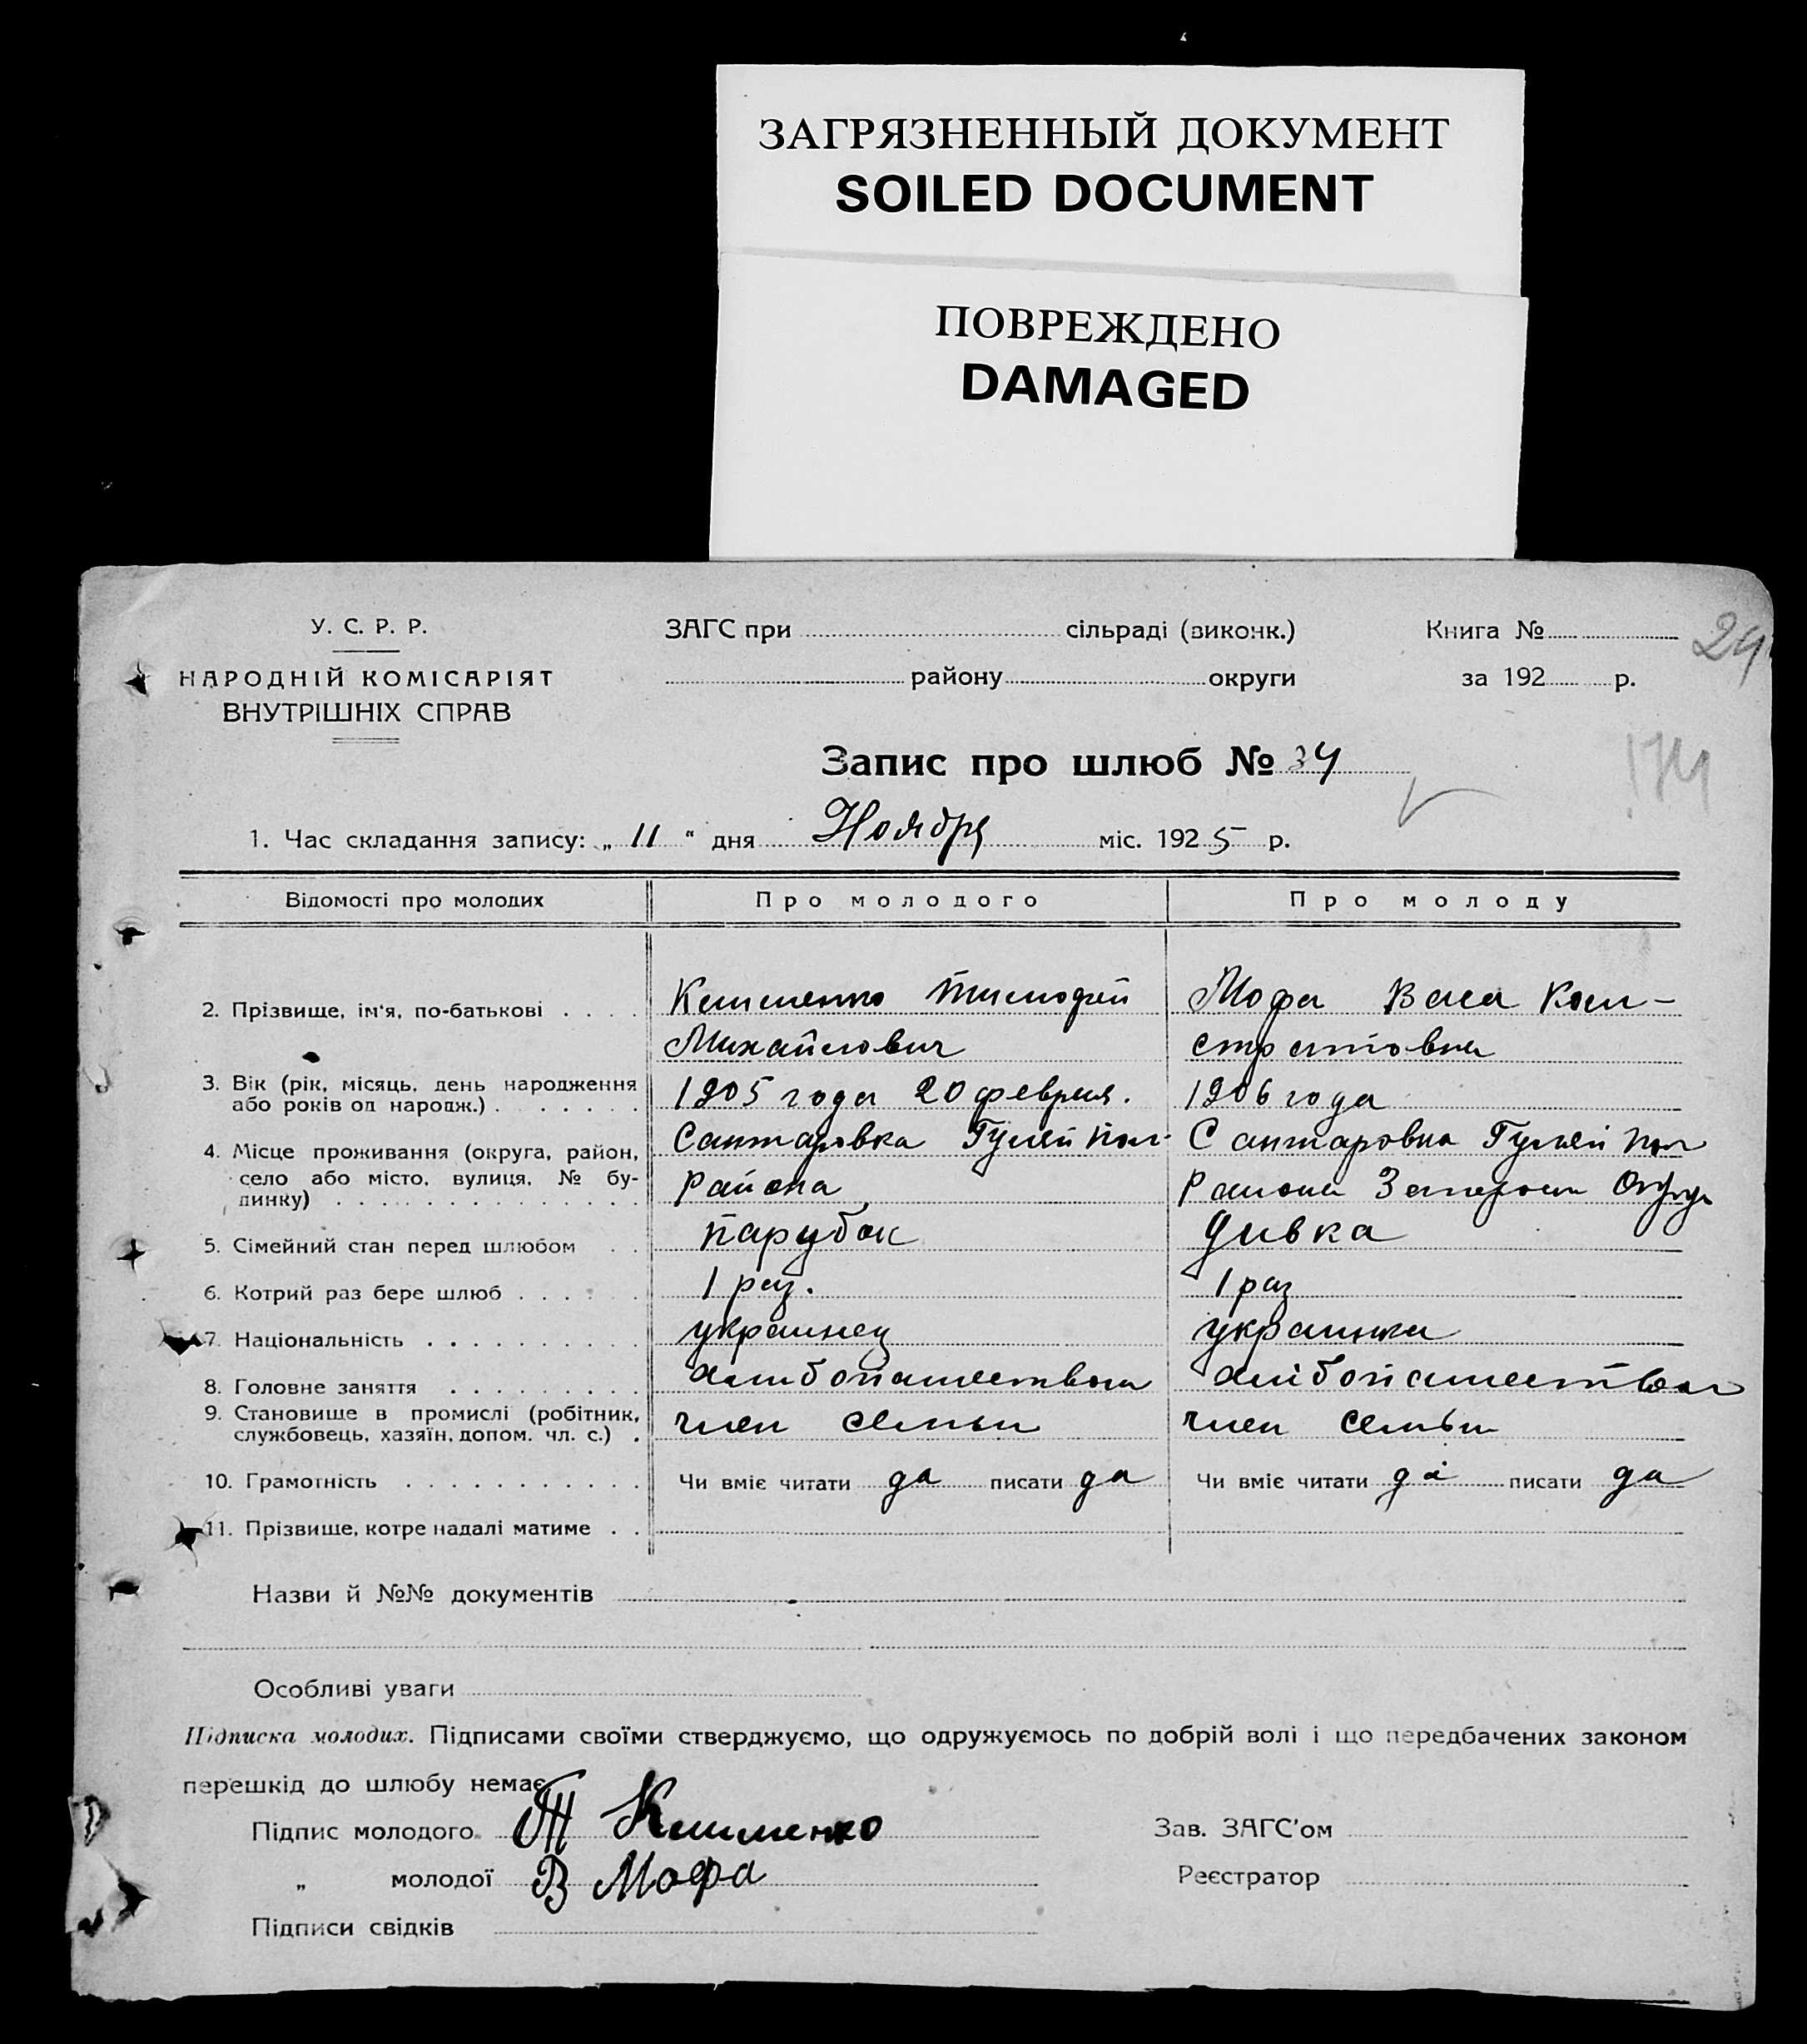 ЗАГРЯЗНЕННЫЙ ДОКУМЕНТ
SOILED DOCUMENT
ПОВРЕЖДЕНО
DAMAGED
У. С. Р. Р.
НАРОДНІЙ КОМІСАРІЯТ
ВНУТРІШНІХ СПРАВ
ЗАГС при сільраді (виконк.)
району округи
Книга №
за 192 р.
29
Запис про шлюб № 34
174
1. Час складання запису: „ 11 “ дня Ноября міс. 1925 р.
Відомості про молодих Про молодого Про молоду
2. Прізвище, ім'я, по-батькові . . . . Клименко Тимофей Мофа Васа
Михайлович
3. Вік (рік, місяць, день народження
або років од народж.) . . . . . . . 1905 года 20 февраля. 1906 года
4. Місце проживання (округа, район,
село або місто, вулиця, № бу-
динку) . . . . . . . . . . . . . .
Сантаровка Гуляй Пол. Сантаровка Гуляй Пол
Района Района Запорож Округ
5. Сімейний стан перед шлюбом . . парубок дивка
6. Котрий раз бере шлюб . . . . . . 1 раз. 1 раз
7. Національність . . . . . . . . . . украинец украинка
8. Головне заняття . . . . . . . . .
9. Становище в промислі (робітник,
службовець, хазяїн, допом. чл. с.) . член семьи член семьи
10. Грамотність . . . . . . . . . . . Чи вміє читати да писати да Чи вміє читати да писати да
11. Прізвище, котре надалі матиме . .
Назви й №№ документів
Особливі уваги
Підписка молодих. Підписами своїми стверджуємо, що одружуємось по добрій волі і що передбачених законом
перешкід до шлюбу немає.
Підпис молодого Т Клименко Зав. ЗАГС'ом
„ молодої В Мофа Реєстратор
Підписи свідків